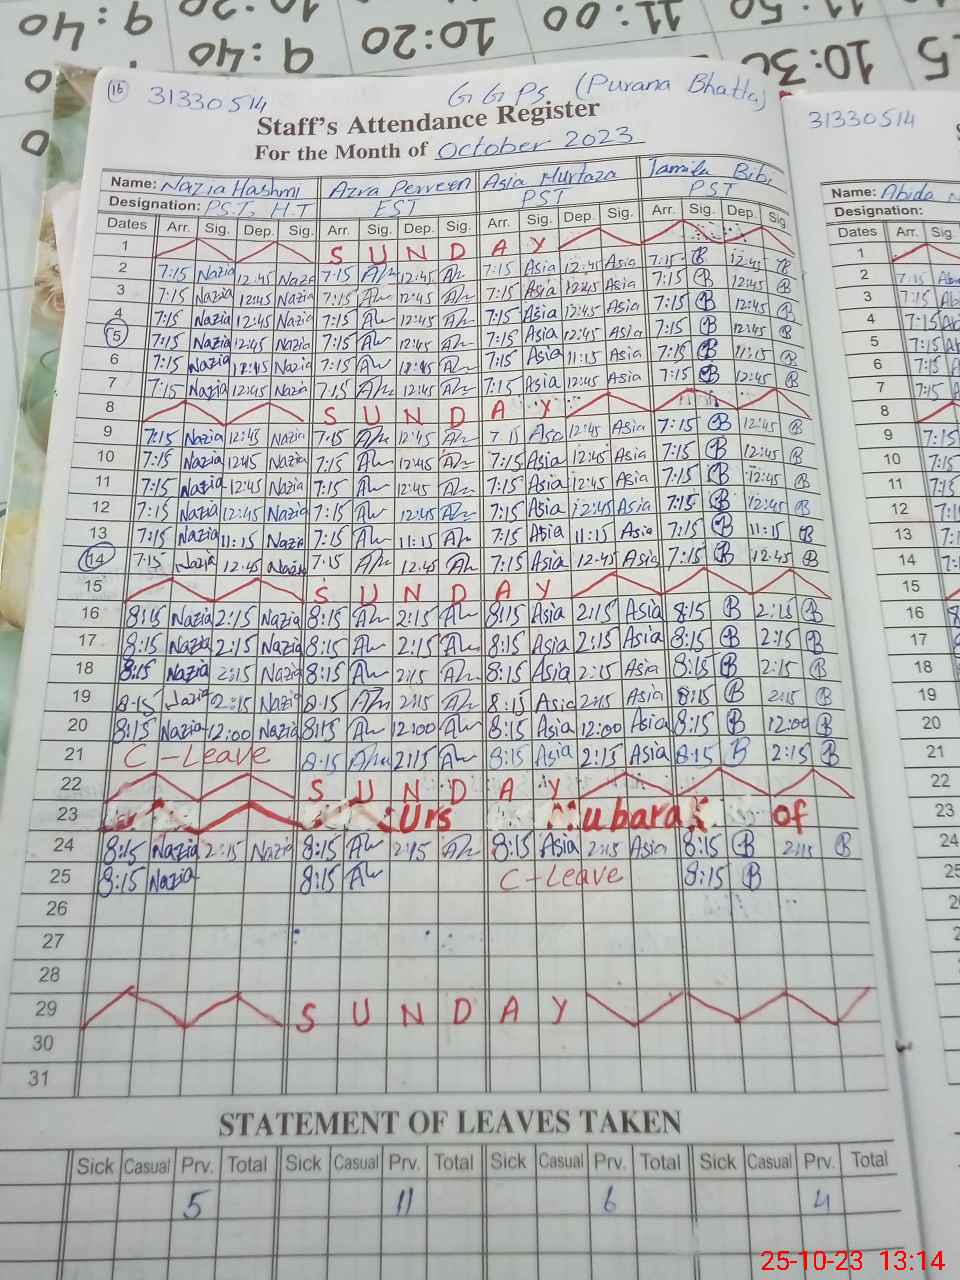 9:40 10:20 11:00 11:50
9:40 10:20 10:30
16 31330514 G G PS (Purana Bhatta)
Staff's Attendance Register
For the Month of October 2023
Name: Nazia Hashmi Azra Perveen Asia Murtaza Jamila Bibi
Designation: PST, H.T EST PST PST
Dates Arr. Sig. Dep. Sig. Arr. Sig. Dep. Sig. Arr. Sig. Dep. Sig. Arr. Sig. Dep. Sig
1 S U N D A Y
2 7:15 Nazia 12:45 Nazia 7:15 12:45 7:15 Asia 12:45 Asia 7:15 B 12:45 B
3 7:15 Nazia 12:45 Nazia 7:15 12:45 7:15 Asia 12:45 Asia 7:15 B 12:45 B
4 7:15 Nazia 12:45 Nazia 7:15 12:45 7:15 Asia 12:45 Asia 7:15 B 12:45 B
5 7:15 Nazia 12:45 Nazia 7:15 12:45 7:15 Asia 12:45 Asia 7:15 B 12:45 B
6 7:15 Nazia 12:45 Nazia 7:15 12:45 7:15 Asia 11:15 Asia 7:15 B 11:15 B
7 7:15 Nazia 12:45 Nazia 7:15 12:45 7:15 Asia 12:45 Asia 7:15 B 12:45 B
8 S U N D A Y
9 7:15 Nazia 12:45 Nazia 7:15 12:45 7:15 Asia 12:45 Asia 7:15 B 12:45 B
10 7:15 Nazia 12:45 Nazia 7:15 12:45 7:15 Asia 12:45 Asia 7:15 B 12:45 B
11 7:15 Nazia 12:45 Nazia 7:15 12:45 7:15 Asia 12:45 Asia 7:15 B 12:45 B
12 7:15 Nazia 12:45 Nazia 7:15 12:45 7:15 Asia 12:45 Asia 7:15 B 12:45 B
13 7:15 Nazia 11:15 Nazia 7:15 11:15 7:15 Asia 11:15 Asia 7:15 B 11:15 B
14 7:15 Nazia 12:45 Nazia 7:15 12:45 7:15 Asia 12:45 Asia 7:15 B 12:45 B
15 S U N D A Y
16 8:15 Nazia 2:15 Nazia 8:15 2:15 8:15 Asia 2:15 Asia 8:15 B 2:15 B
17 8:15 Nazia 2:15 Nazia 8:15 2:15 8:15 Asia 2:15 Asia 8:15 B 2:15 B
18 8:15 Nazia 2:15 Nazia 8:15 2:15 8:15 Asia 2:15 Asia 8:15 B 2:15 B
19 8:15 Nazia 2:15 Nazia 8:15 2:15 8:15 Asia 2:15 Asia 8:15 B 2:15 B
20 8:15 Nazia 12:00 Nazia 8:15 12:00 8:15 Asia 12:00 Asia 8:15 B 12:00 B
21 C-Leave 8:15 2:15 8:15 Asia 2:15 Asia 8:15 B 2:15 B
22 S U N D A Y
23 Urs Mubarak of
24 8:15 Nazia 2:15 Nazia 8:15 2:15 8:15 Asia 2:15 Asia 8:15 B 2:15 B
25 8:15 Nazia 8:15 C-Leave 8:15 B
26
27
28
29 S U N D A Y
30
31
STATEMENT OF LEAVES TAKEN
Sick Casual Prv. Total Sick Casual Prv. Total Sick Casual Prv. Total Sick Casual Prv. Total
5 11 6 4
31330514
Name: Abida
Designation:
Dates Arr. Sig
1
2 7:15
3 7:15
4 7:15
5 7:15
6 7:15
7 7:15
8
9 7:15
10 7:15
11 7:15
12 7:15
13
14
15
16 8:15
17 8:15
18 8:15
19 8:15
20 8:15
21 8:15
22
23
24
25-10-23 13:14